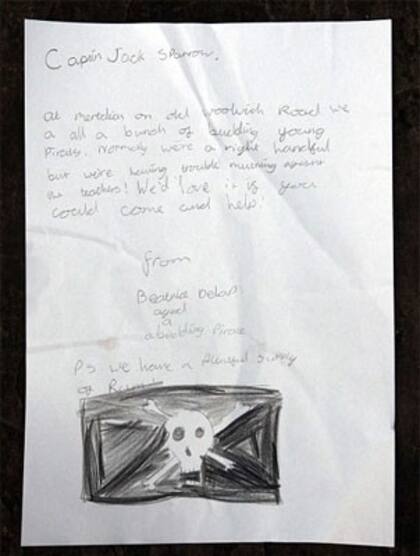 Captin Jack Sparrow,
At meridian on old woolwich Road we
a all a bunch of budding young
Pirats. Normaly we're a right handful
but we're having trouble mutining against
the teachers! We'd love it if you
could come and help.
from
Beatrice Delap
aged
9
a budding Pirate
PS we have a Plentiful Supply
of